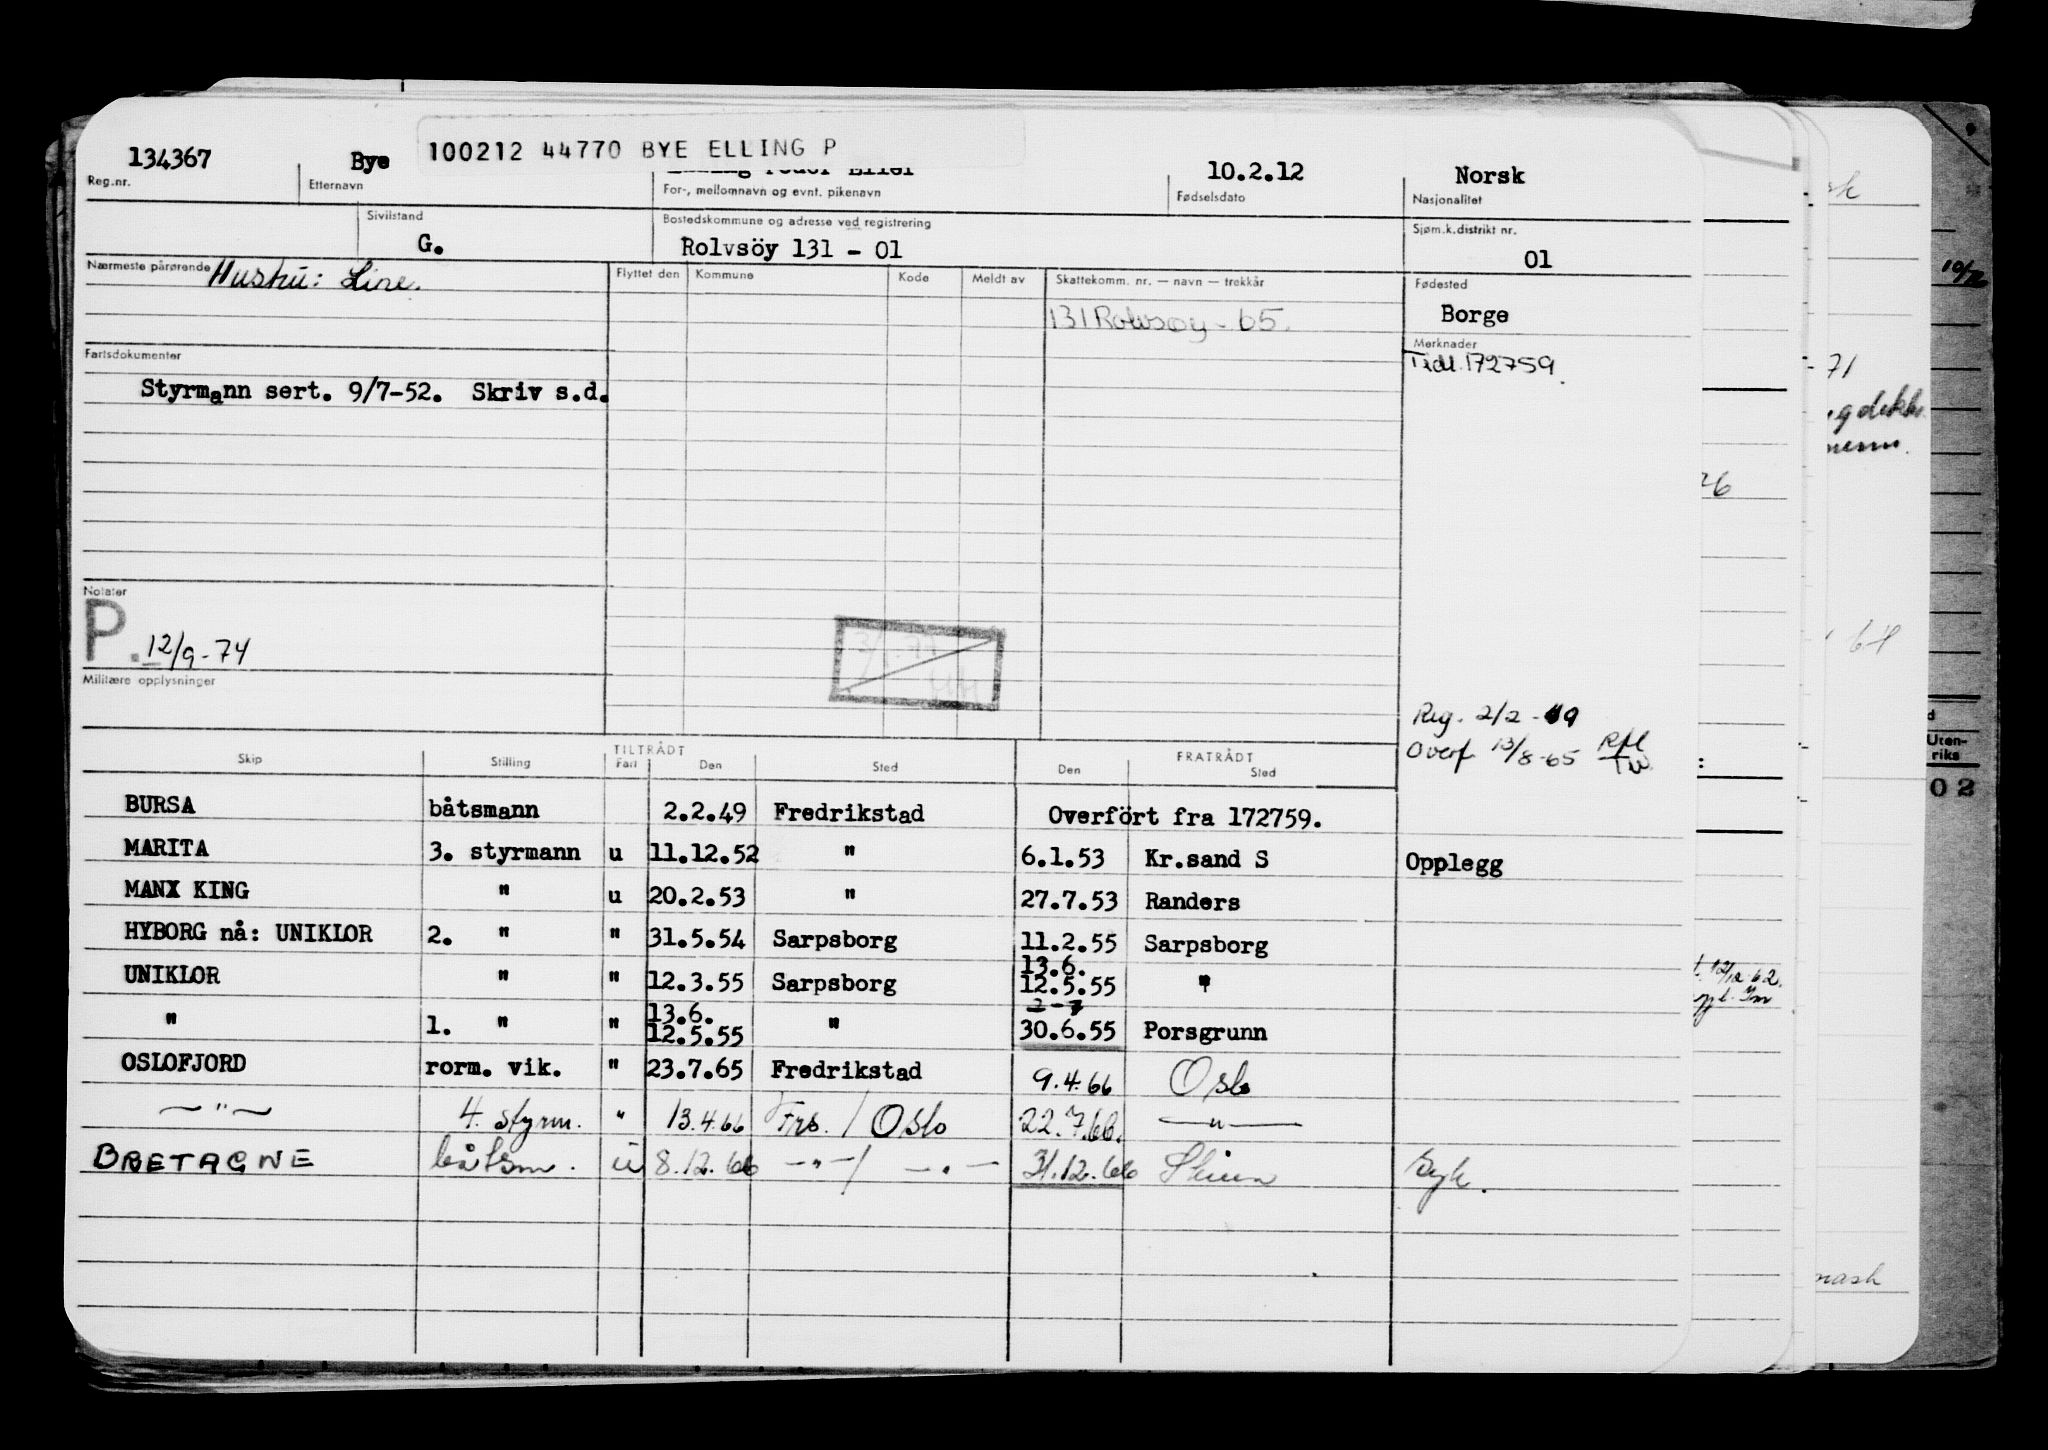 134367 Bye 100212 44770 BYE ELLING P 10.2.12 Norsk
Reg.nr. Etternavn For-, mellomnavn og evnt. pikenavn Fødselsdato Nasjonalitet
Sivilstand Bostedskommune og adresse ved registrering Sjøm.k.distrikt nr.
G. Rolvsöy 131 - 01 01
Nærmeste pårørende Hustru: Line. Flyttet den Kommune Kode Meldt av Skattekomm. nr. — navn — trekkår Fødested
131 Rolvsøy - 65. Borge
Fartsdokumenter Merknader
Tidl. 172759.
Styrmann sert. 9/7-52. Skriv s.d.
Notater
P. 12/9-74
Militære opplysninger
Reg. 2/2-49
Overf 13/8-65
Skip Stilling TILTRÅDT Fart Den Sted FRATRÅDT Den Sted
BURSA båtsmann 2.2.49 Fredrikstad Overfört fra 172759.
MARITA 3. styrmann u 11.12.52 " 6.1.53 Kr.sand S Opplegg
MANX KING " u 20.2.53 " 27.7.53 Randers
HYBORG nå: UNIKLOR 2. " " 31.5.54 Sarpsborg 11.2.55 Sarpsborg
UNIKLOR " " 12.3.55 Sarpsborg 13.6. 12.5.55 "
" 1. " " 13.6. 12.5.55 " 2-7 30.6.55 Porsgrunn
OSLOFJORD rorm. vik. " 23.7.65 Fredrikstad 9.4.66 Oslo
—"— 4. styrm. " 13.4.66 Frs. / Oslo 22.7.66. —"—
BRETAGNE båtsm. u 8.12.66 —"—/ —"— 31.12.66 Skien Syk.
Uten-
riks
02